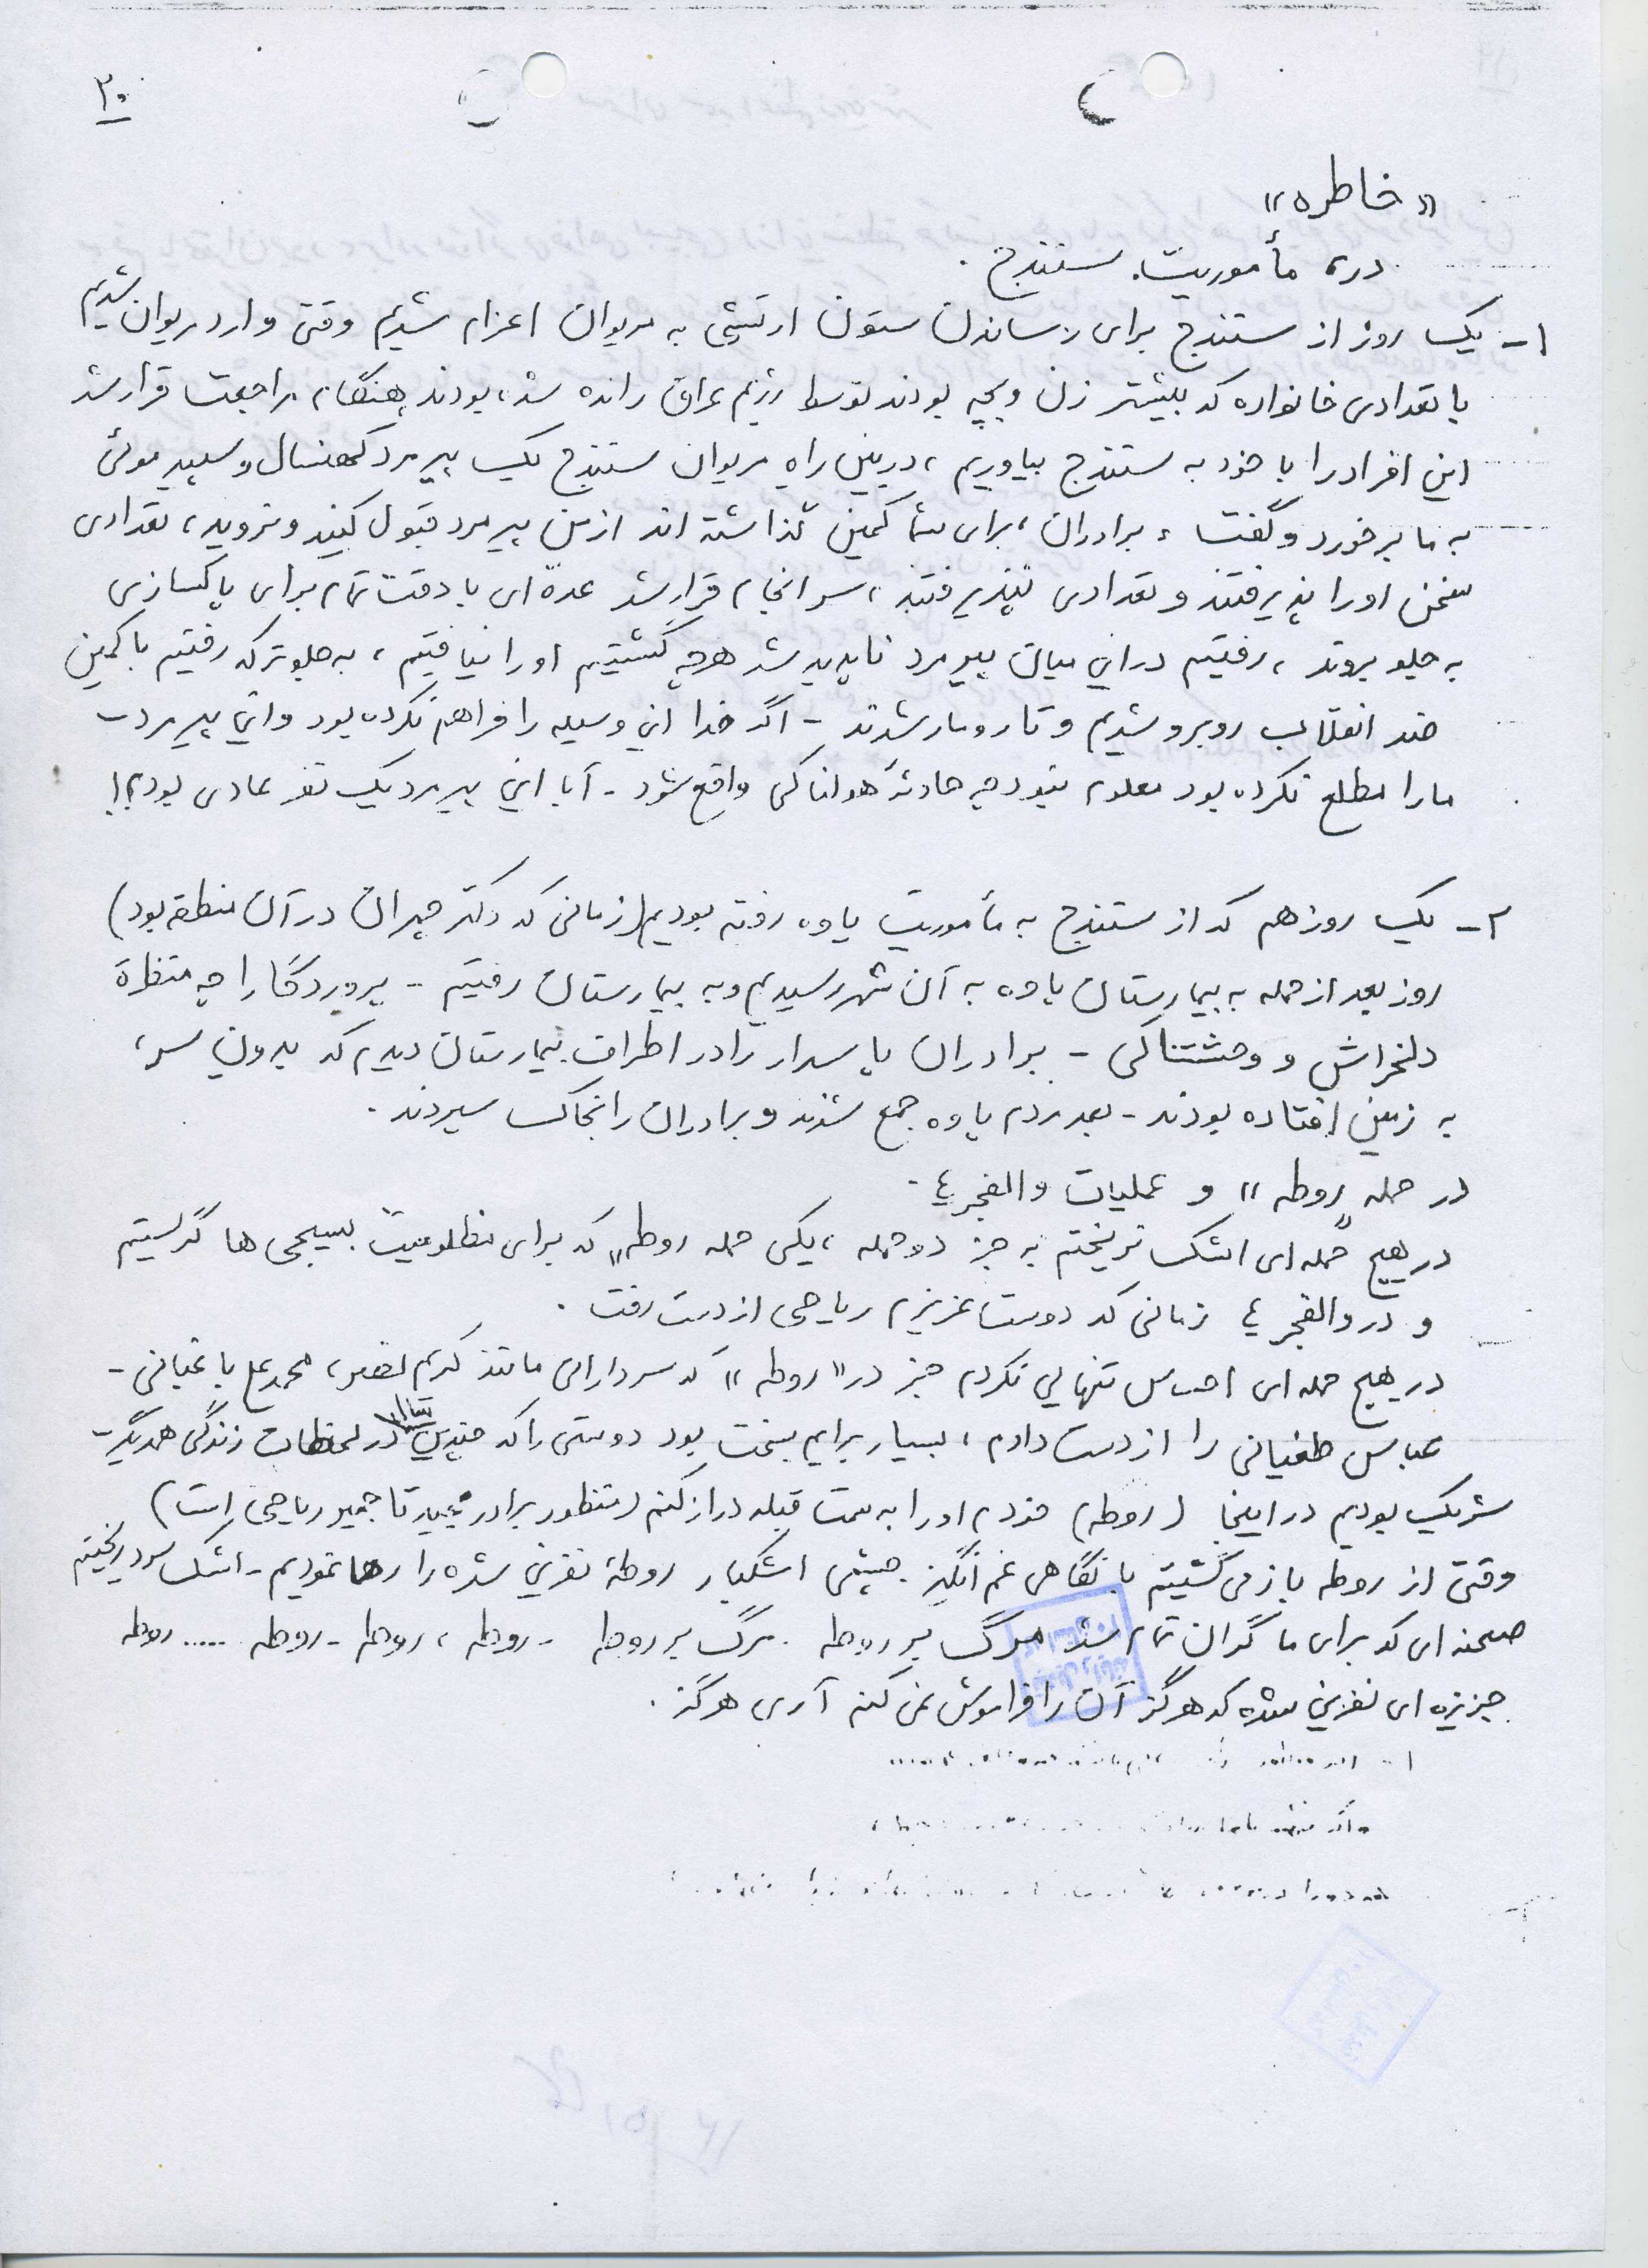 ۲۰
«خاطره»
در، مأموریت سنندج.
۱- یک روز از سنندج برای رساندن ستون ارتشی به مریوان اعزام شدیم وقتی وارد مریوان شدیم
با تعدادی خانواده که بیشتر زن و بچه بودند توسط رژیم عراق رانده شده بودند هنگام مراجعت قرار شد
این افراد را با خود به سنندج بیاوریم، در بین راه مریوان سنندج یک پیرمرد کهنسال و سپید موئی
به ما برخورد و گفت، برادران، برای شما کمین گذاشته اند از من پیرمرد قبول کنید و نروید، تعدادی
سخن او را پذیرفتند و تعدادی نپذیرفتند، سرانجام قرار شد عدّه ای با دقت تمام برای پاکسازی
به جلو بروند، رفتیم در این میان پیرمرد ناپدید شد هرچه گشتیم او را نیافتیم، به جلوتر که رفتیم با کمین
ضد انقلاب روبرو شدیم و تارومار شدند - اگر خدا این وسیله را فراهم نکرده بود و این پیرمرد
ما را مطلع نکرده بود معلوم نبود چه حادثه هولناکی واقع شود - آیا این پیرمرد یک نفر عادی بود؟!
۲- یک روز هم که از سنندج به مأموریت پاوه رفته بودیم (زمانی که دکتر چمران در آن منطقه بود)
روز بعد از حمله به بیمارستان پاوه به آن شهر رسیدیم و به بیمارستان رفتیم - پروردگارا چه منظرۀ
دلخراش و وحشتناکی - برادران پاسدار را در اطراف بیمارستان دیدیم که بدون سر،
به زمین افتاده بودند - بعد مردم پاوه جمع شدند و برادران را بخاک سپردند.
در حمله «روطه» و عملیات والفجر ٤.
در هیچ حمله ای اشک نریختم به جز دو حمله، یکی حمله «روطه» که برای مظلومیت بسیجی ها گریستم
و در والفجر ٤ زمانی که دوست عزیزم ریاحی از دست رفت.
در هیچ حمله ای احساس تنهایی نکردم جز در «روطه» که سردارانی مانند کریم نصر، محمدعلی باغبانی -
عباس طغیانی را از دست دادم، بسیار برایم سخت بود دوستی را که چندین سال در لحظات زندگی همدیگر -
شریک بودیم در اینجا (روطه) خودم او را به سمت قبله دراز کنم (منظور برادر ریاحی است)
وقتی از روطه باز می گشتیم با نگاهی غم انگیز چشمی اشکبار روطۀ نفرین شده را رها نمودیم - اشک سرد ریختیم
صحنه ای که برای ما گران تمام شد مرگ بر روطه. مرگ بر روطه - روطه، روطه - روطه ..... روطه
جزیزه ای نفرین شده که هرگز آن را فراموش نمی کنم آری هرگز.